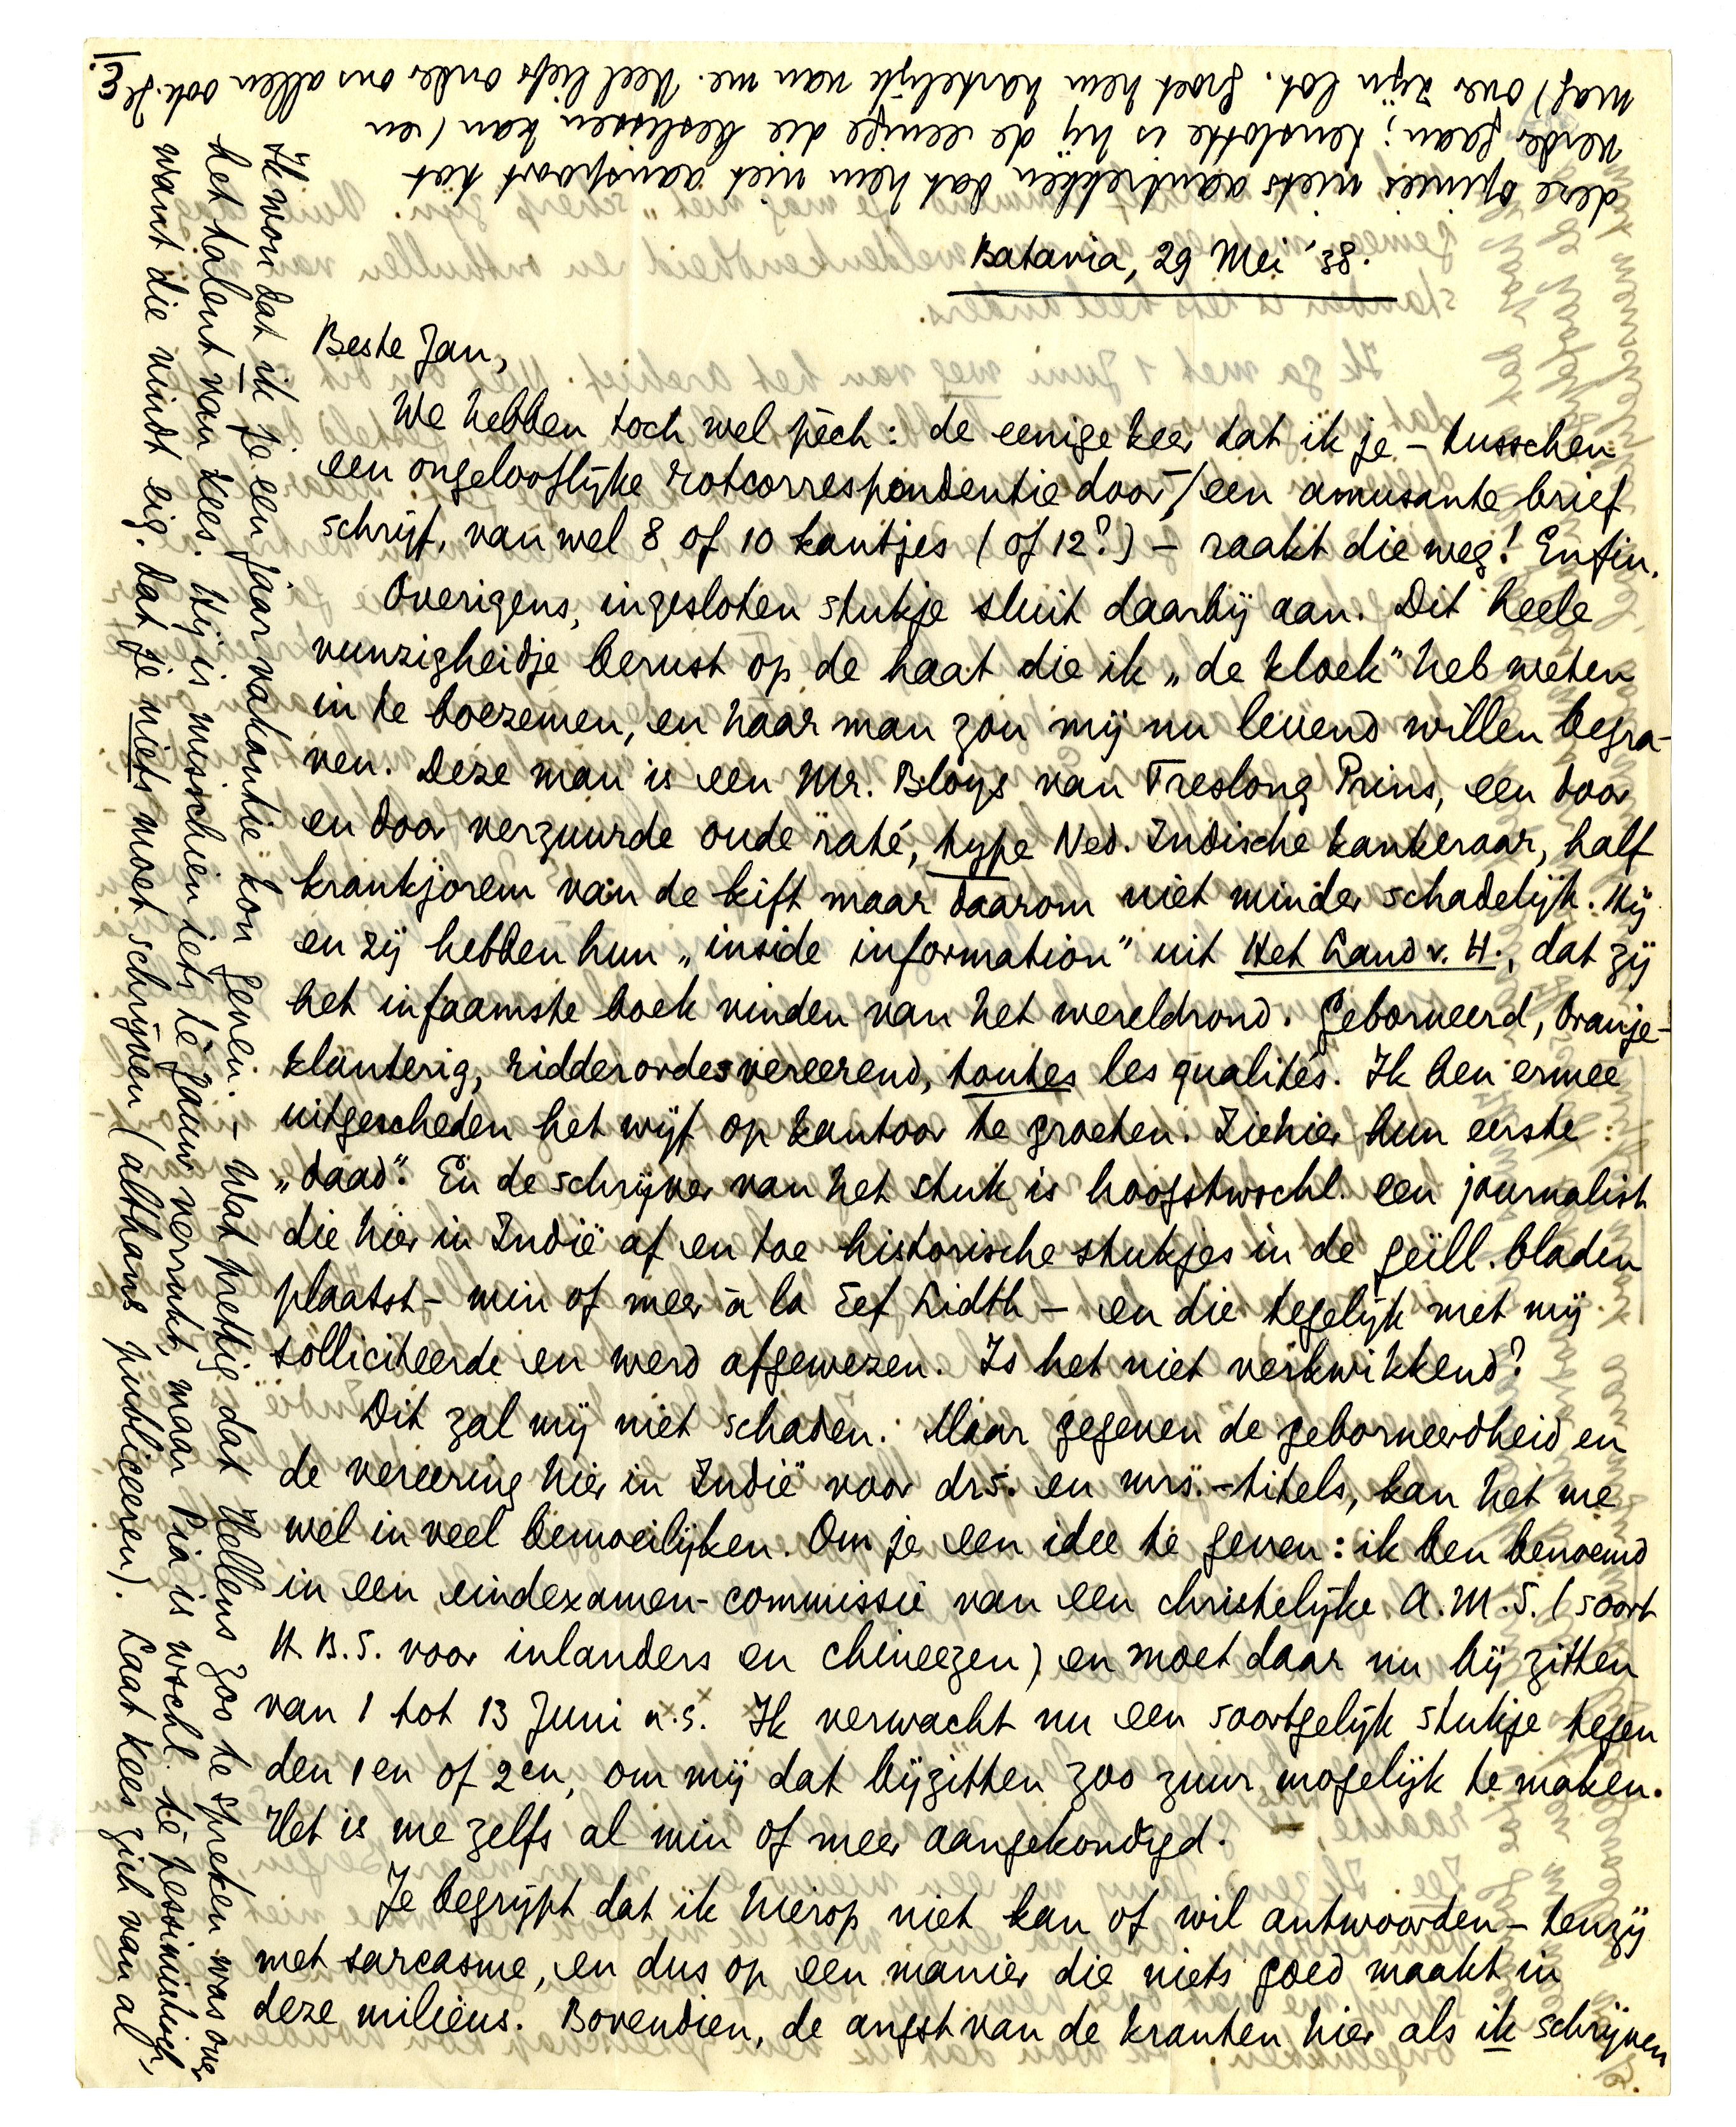 Batavia, 29 Mei '38.
Beste Jan,
We hebben toch wel pèch: de eenige keer dat ik je – tusschen
een ongelooflijke rotcorrespondentie door – een amusante brief
schrijf, van wel 8 of 10 kantjes (of 12?) – raakt die weg! Enfin.
Overigens, ingesloten stukje sluit daarbij aan. Dit heele
vunzigheidje berust op de haat die ik „de kloek" heb weten
in te boezemen, en haar man zou mij nu levend willen begra-
ven. Deze man is een Mr. Bloys van Treslong Prins, een door
en door verzuurde oude raté, type Ned. Indische kankeraar, half
krankjorem van de kift maar daarom niet minder schadelijk. Hij
en zij hebben hun „inside information" uit Het Land v. H., dat zij
het infaamste boek vinden van het wereldrond. Geborneerd, Oranje-
klanterig, ridderordesvereerend, toutes les qualités. Ik ben ermee
uitgescheden het wijf op kantoor te groeten. Ziehier hun eerste
„daad". En de schrijver van het stuk is hoogstwschl. een journalist
die hier in Indië af en toe historische stukjes in de geïll. bladen
plaatst – min of meer à la Eef Lidth – en die tegelijk met mij
solliciteerde en werd afgewezen. Is het niet verkwikkend?
Dit zal mij niet schaden. Maar gegeven de geborneerdheid en
de vereering hier in Indië voor drs. en mrs.-titels, kan het me
wel in veel bemoeilijken. Om je een idee te geven: ik ben benoemd
in een eindexamen-commissie van een christelijke A.M.S. (soort
H.B.S. voor inlanders en chineezen) en moet daar nu bij zitten
van 1 tot 13 Juni a.s. Ik verwacht nu een soortgelijk stukje tegen
den 1en of 2en, om mij dat bijzitten zoo zuur mogelijk te maken.
Het is me zelfs al min of meer aangekondigd.
Je begrijpt dat ik hierop niet kan of wil antwoorden – tenzij
met sarcasme, en dus op een manier die niets goed maakt in
deze milieus. Bovendien, de angst van de kranten hier als ik schrijven
Ik wou dat ik je een jaar „vakantie" kon geven. – Wat prettig dat Hellens zoo te spreken was over
het talent van Kees. Hij is misschien iets tè gauw verrukt, maar Pia is wschl. tè pessimistisch,
want die vindt eig. dat je niets moet schrijven (althans publiceeren). Laat Kees zich van al
deze opinies niets aantrekken dat hem niet aanspoort tot
verder gaan; tenslotte is hij de eenige die beslissen kan (en
mag) over zijn lot. Groet hem hartelijk van me. Veel liefs onder ons allen ook. Je
E.